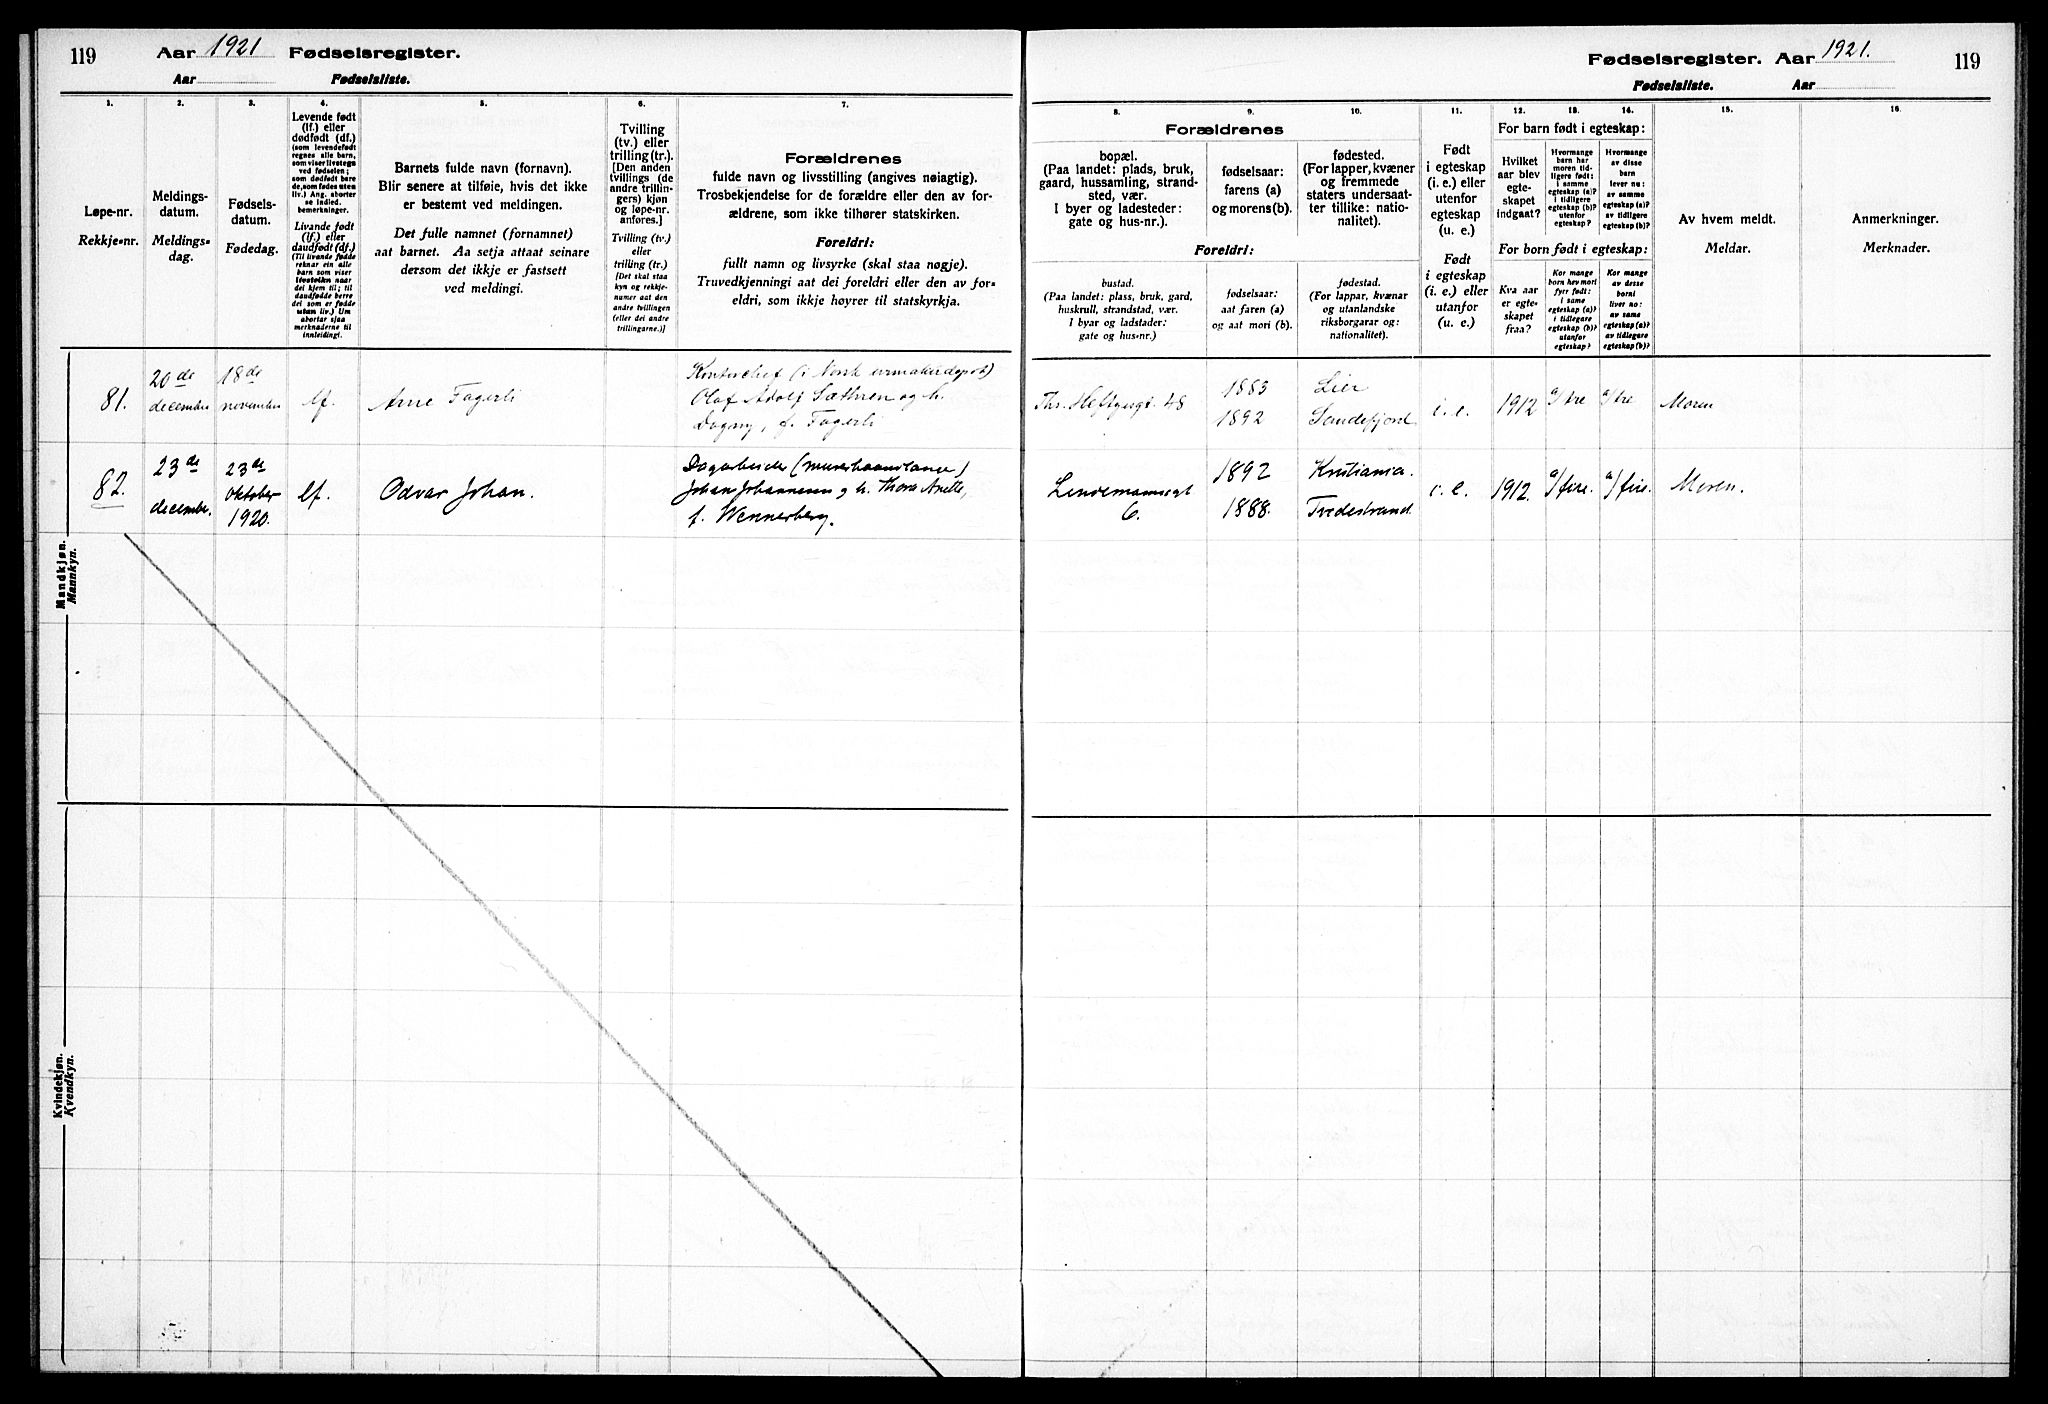 119
Aar 1921 Fødselsregister.
Aar Fødselsliste.
1.
2.
3.
4.
5.
6.
7.
Løpe-nr.
Rekkje-nr.
Meldings-
datum.
Meldings-
dag.
Fødsels-
datum.
Fødedag.
Levende født
(lf.) eller
dødfødt (df.)
(som levendefødt
regnes alle barn,
som viser livstegn
ved fødselen;
som dødfødt bare
de, som fødes uten
liv.) Ang. aborter
se indled.
bemerkninger.
Livande født
(lf.) eller
daudfødt (df.)
(Til livande fødde
reknar ein alle
barn som viser
livsteikn naar
dei kjem til; til
daudfødde berre
dei som er fødde
utan liv.) Um
abortar sjaa
merknaderne til
innleiding!.
Barnets fulde navn (fornavn).
Blir senere at tilføie, hvis det ikke
er bestemt ved meldingen.
Det fulle namnet (fornamnet)
aat barnet. Aa setja attaat seinare
dersom det ikkje er fastsett
ved meldingi.
Tvilling
(tv.) eller
trilling (tr.).
[Den anden
tvillings (de
andre trillin-
gers) kjøn
og løpe-nr.
anføres.]
Tvilling (tv.)
eller
trilling (tr.)
[Det skal staa
kyn og rekkje-
numer aat den
andre tvillingen
(eller dei andre
trillingarne.)]
Forældrenes
fulde navn og livsstilling (angives nøiagtig).
Trosbekjendelse for de forældre eller den av for-
ældrene, som ikke tilhører statskirken.
Foreldri:
fullt namn og livsyrke (skal staa nøgje).
Truvedkjenningi aat dei foreldri eller den av for-
eldri, som ikkje høyrer til statskyrkja.
81.
20de
december
18de
november
lf.
Arne Fagerli
Kontorchef (i Norsk armaturdepot)
Olaf Adolf Sæthren og h.
Dagny, f. Fagerli
82.
23de
december.
23de
oktober
1920.
lf.
Odvar Johan.
Dagarbeider (murerhaandlanger)
Johan Johannesen og h. Thora Anette,
f. Wennerberg.
Mandkjøn.
Mannkyn.
Kvindekjøn.
Kvendkyn.
Fødselsregister. Aar 1921.
119
Fødselsliste. Aar
8.
9.
10.
11.
12.
13.
14.
15.
16.
Forældrenes
bopæl.
(Paa landet: plads, bruk,
gaard, hussamling, strand-
sted, vær.
I byer og ladesteder:
gate og hus-nr.).
fødselsaar:
farens (a)
og morens (b).
fødested.
(For lapper, kvæner
og fremmede
staters undersaat-
ter tillike: natio-
nalitet).
Foreldri:
bustad.
(Paa landet: plass, bruk, gard,
huskrull, strandstad, vær.
I byar og ladstader:
gate og hus-nr.)
fødselsaar:
aat faren (a)
og aat mori (b).
fødestad.
(For lappar, kvænar
og utanlandske
riksborgarar og:
nationalitet).
Født
i egteskap
(i. e.) eller
utenfor
egteskap
(u. e.)
Født
i egteskap
(i. e.) eller
utanfor
(u. e.)
For barn født i egteskap:
Hvilket
aar blev
egte-
skapet
indgaat?
Hvormange
barn har
moren tid-
ligere født:
i samme
egteskap (a)?
i tidligere
egteskap (b)?
utenfor
egteskap?
Hvormange
av disse
barn
lever nu:
av samme
egteskap (a)?
av tidligere
egteskap (b)?
For born født i egteskap:
Kva aar
er egte-
skapet
fraa?
Kor mange
born hev mori
fyrr født:
i same
egteskap (a)?
i tidlegare
egteskap (b)?
utanfor
egteskap?
Kor mange
av desse
borni
liver no:
av same
egteskap (a)?
av tidlegare
egteskap (b)?
Av hvem meldt.
Meldar.
Anmerkninger.
Merknader.
Ths. Heftyesgt. 48
1883
1892
Lier
Sandefjord
i. e.
1912
a/ tre
a/ tre
Moren
Lindemannsgt
6.
1892
1888.
Kristiania.
Tvedestrand.
i. e.
1912.
a/ fire.
a/ fire.
Moren.